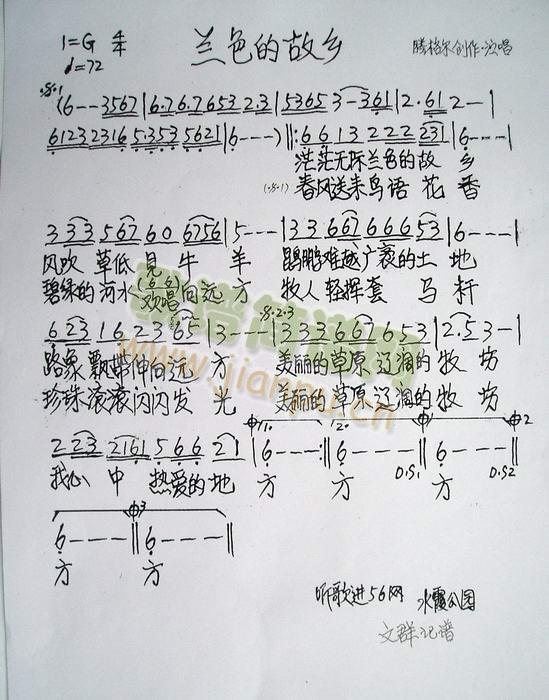 1=G 4/4 兰色的故乡 腾格尔创作·演唱
♩=72
(6--3567|6.76.7.6532.3|53653-361|2.612-|
61232316 5.3535621|6---)‖:66132222 31|6---|
茫茫无际兰色的故 乡
春风送来鸟语 花 香
3335676067 56|5---|3366766653|6---|
风吹 草低 见 牛 羊 鹍鹏难越广袤的土 地
碧绿的河水(66)欢唱向远 方 牧人轻挥套 马 杆
623162365|3---|33366 7653|2.53-|
路象飘带伸向远 方 美丽的草原辽阔的牧 场
珍珠滚滚闪闪发 光 美丽的草原辽阔的牧 场
22321615 6621|6---:‖6---‖6---‖6---‖
1. 2. D.S1 D.S2
我心 中 热爱的地 方 方 方 方
6---‖6---‖
方 方
听歌进56网 水霞公园
文群记谱
www.jianpu.cn